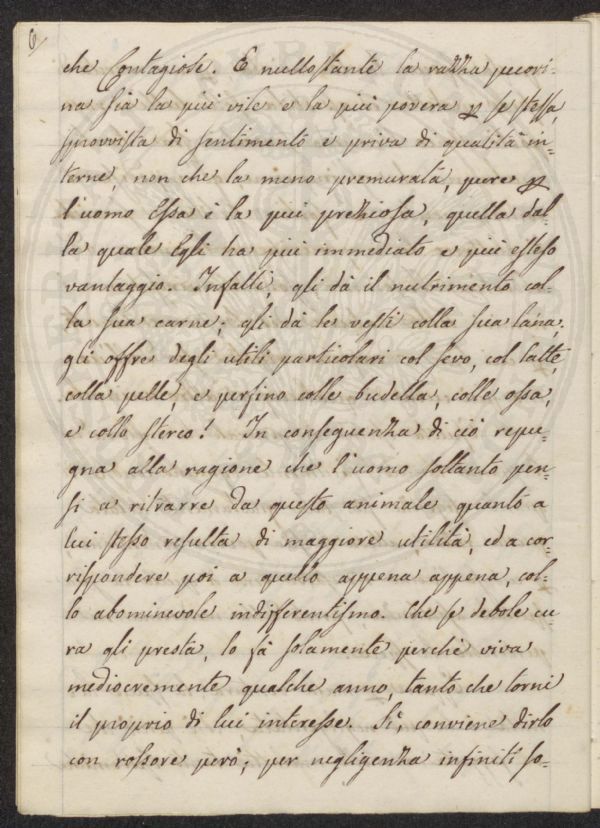 6
che Contagiose. E nullostante la razza pecori-
na sia la più vile e la più povera p se stessa,
sprovvista di sentimento e priva di qualità in-
terne, non che la meno premurata, pure p
l'uomo Essa è la più preziosa, quella dal
la quale Egli ha più immediato e più esteso
vantaggio. Infatti, gli dà il nutrimento col-
la sua carne; gli dà le vesti colla sua lana,
gli offre degli utili particolari col sevo, col latte,
colla pelle, e persino colle budella, colle ossa,
e collo sterco! In conseguenza di ciò repu-
gna alla ragione che l'uomo soltanto pen-
si a ritrarre da questo animale quanto a
lui stesso resulta di maggiore utilità, ed a cor-
rispondere poi a quello appena appena, col-
lo abominevole indifferentismo. Che se debole cu-
ra gli presta, lo fà solamente perchè viva
mediocremente qualche anno, tanto che torni
il proprio di lui interesse. Sì, conviene dirlo
con rossore però; per negligenza infiniti so-